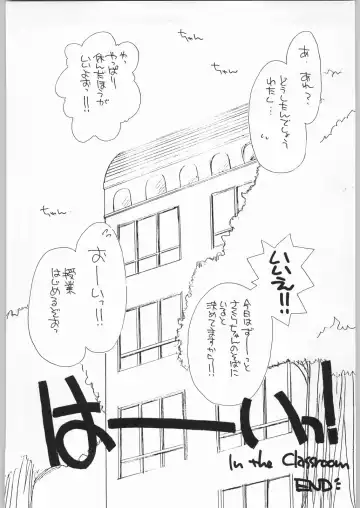 あ あれ?
どうしたんでしょう
わたし…
ちゅん
やっ
やっぱー
休んだほうが
いいよおっ!!
ちゅん
いいえ!!
今日はずーっと
さくらちゃんのそばに
いると
決めてますから!!
ちゅん
おーいっ!!
授業
はじめるぞおっ
はーい!
In the Classroom
END